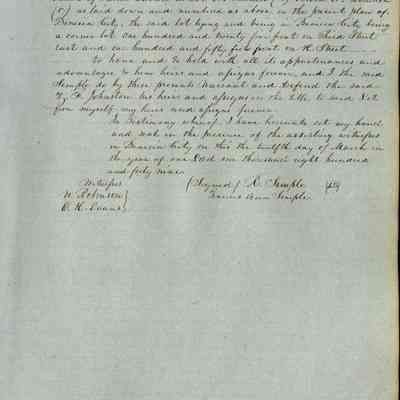 (5) as laid down and numbered as above, in the present plan of
Benicia City, the said lot lying and being in Benicia City being
a corner lot one hundred and twenty five feet on Third Street
East and one hundred and fifty five feet on H. Street
to have and to hold with all its appurtenances and
advantages to him heirs and assigns forever, and I the said
Semple do by these presents Warrant and Defend the said
Johnston his heirs and assigns in the title to said Lot
from myself, my heirs and assigns forever.
In Testimony whereof I have hereunto set my hand
and seal in the presence of the attesting witnesses
in Benicia City on this the twelfth day of March in
the year of our Lord one thousand eight hundred
and forty nine.
Witness (Signed) R. Semple
W. Robinson } Semple